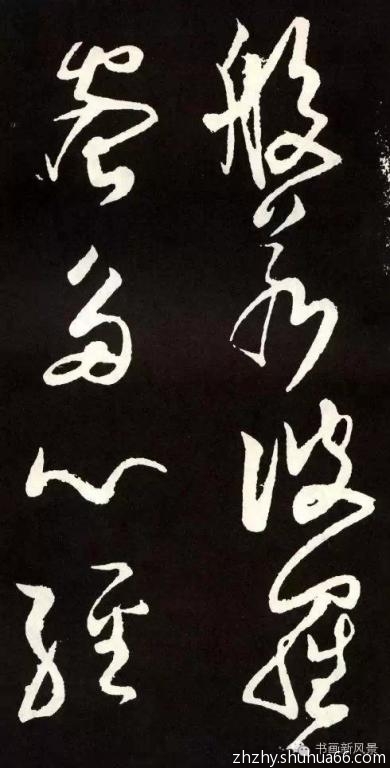 般若波羅
蜜多心經
书画新风景
zhzhy.shuhua66.com